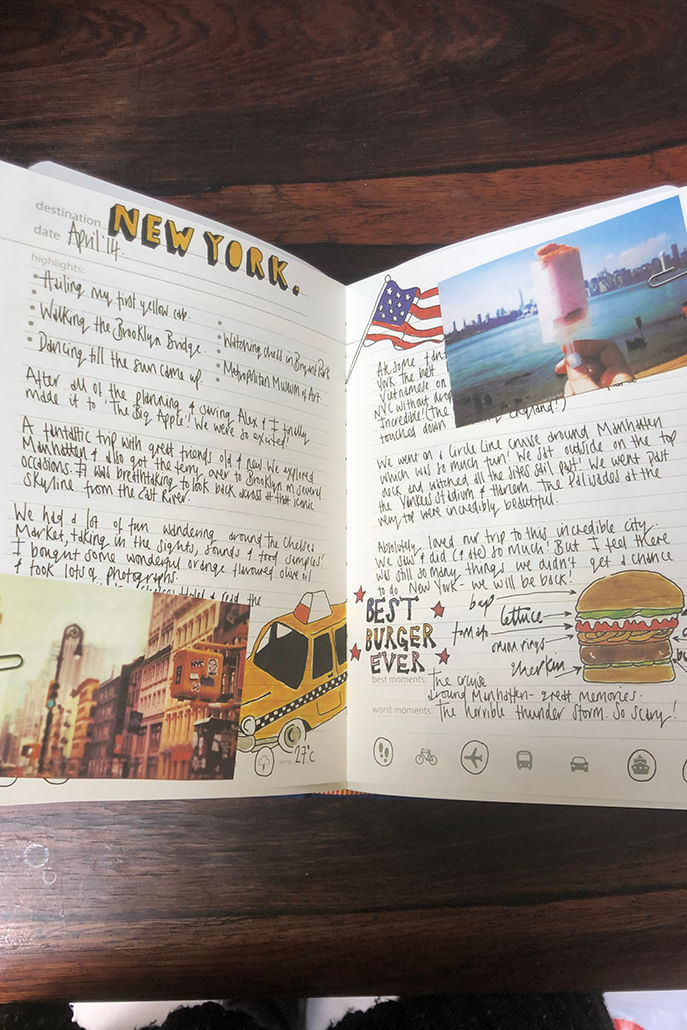 destination NEW YORK.
date April '14
highlights:
• Hailing my first yellow cab.
• Walking the Brooklyn Bridge.
• Dancing till the sun came up
• Watching chess in Bryant Park
• Metropolitan Museum of Art.
After all of the planning & saving Alex & I finally
made it to 'The Big Apple'! We were so excited!
A fantastic trip with great friends old & new. We explored
Manhattan & also got the ferry over to Brooklyn on several
occasions. It was breathtaking to look back across at that iconic
skyline from the East River.
We had a lot of fun wandering around the Chelsea
Market, taking in the sights, sounds & food samples!
I bought some wonderful orange flavoured olive oil
& took lots of photographs.
the
NYC
temp 27°c
Ate some
York. The best
Vietnamese on
NYC without
Incredible! (The
touched down England!)
We went on a Circle Line Cruise around Manhattan
which was so much fun! We sat outside on the top
deck and watched all the sites sail past! We went past
the Yankees Stadium & Harlem. The Palisades at the
very top were incredibly beautiful.
Absolutely loved our trip to this incredible city.
We saw & did (& ate) so much! But I feel there
was still so many things we didn't get a chance
to do New York - we will be back!
BEST
BURGER
EVER
bap
lettuce
tomato
onion rings
gherkin
best moments: The cruise
around Manhattan - great memories.
worst moments: The horrible thunder storm. So scary!